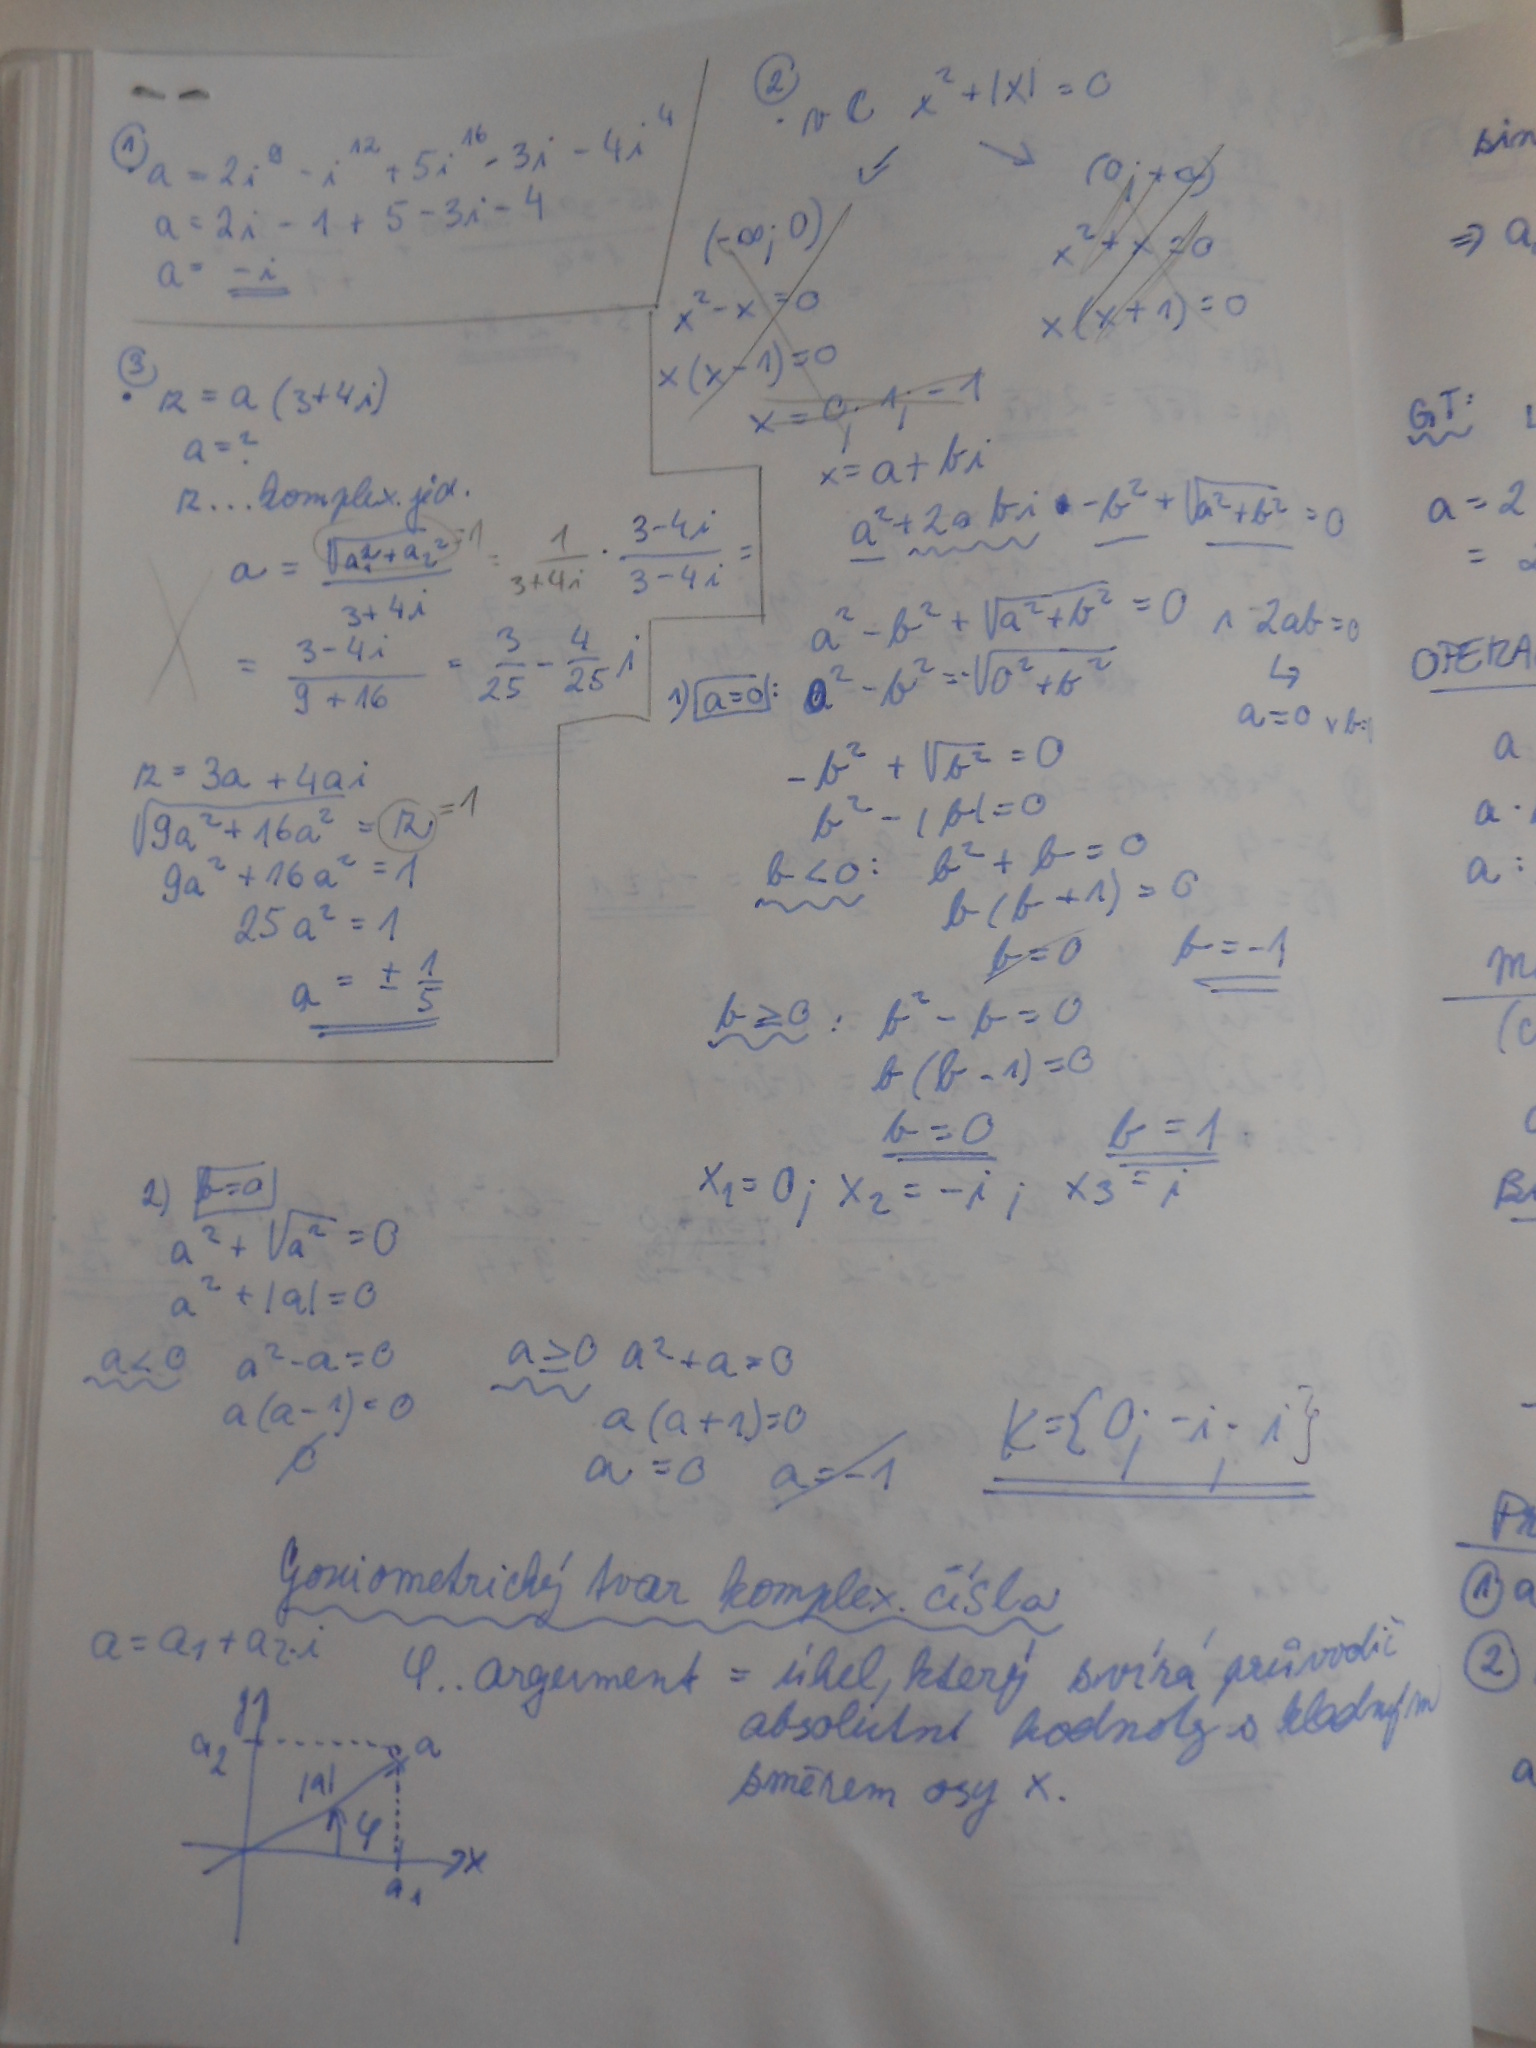 1
a = 2i⁹ - i¹² + 5i¹⁶ - 3i - 4i⁴
a = 2i - 1 + 5 - 3i - 4
a = -i
2
v C x² + |x| = 0
(-∞; 0)
x² - x = 0
x(x - 1) = 0
x² + x = 0
x(x + 1) = 0
x = 0; 1; -1
x = a + bi
a² + 2abi - b² + √(a² + b²) = 0
a² - b² + √(a² + b²) = 0 ∧ 2ab = 0
a = 0 ∨ b =
1) a = 0: 0² - b² = -√(0² + b²)
-b² + √b² = 0
b² - |b| = 0
b < 0: b² + b = 0
b(b + 1) = 0
b = 0 b = -1
b ≥ 0: b² - b = 0
b(b - 1) = 0
b = 0 b = 1
x₁ = 0; x₂ = -i; x₃ = i
3
z = a(3 + 4i)
a = ?
z ... komplex. jed.
a = √(a₁² + a₂²)/(3 + 4i) = 1/(3 + 4i) · (3 - 4i)/(3 - 4i) =
= (3 - 4i)/(9 + 16) = 3/25 - 4/25 i
z = 3a + 4ai
√(9a² + 16a²) = z = 1
9a² + 16a² = 1
25a² = 1
a = ± 1/5
2) b = 0
a² + √a² = 0
a² + |a| = 0
a < 0 a² - a = 0
a(a - 1) = 0
∅
a ≥ 0 a² + a = 0
a(a + 1) = 0
a = 0 a = -1
K = {0; -i; i}
Goniometrický tvar komplex. čísla
a = a₁ + a₂·i
φ.. argument = úhel, který svírá průvodič
absolutní hodnoty s kladným
směrem osy x.
y
a₂
a
|a|
φ
x
a₁
sin
GT:
a = 2
a
a
a :
(1) a
(2)